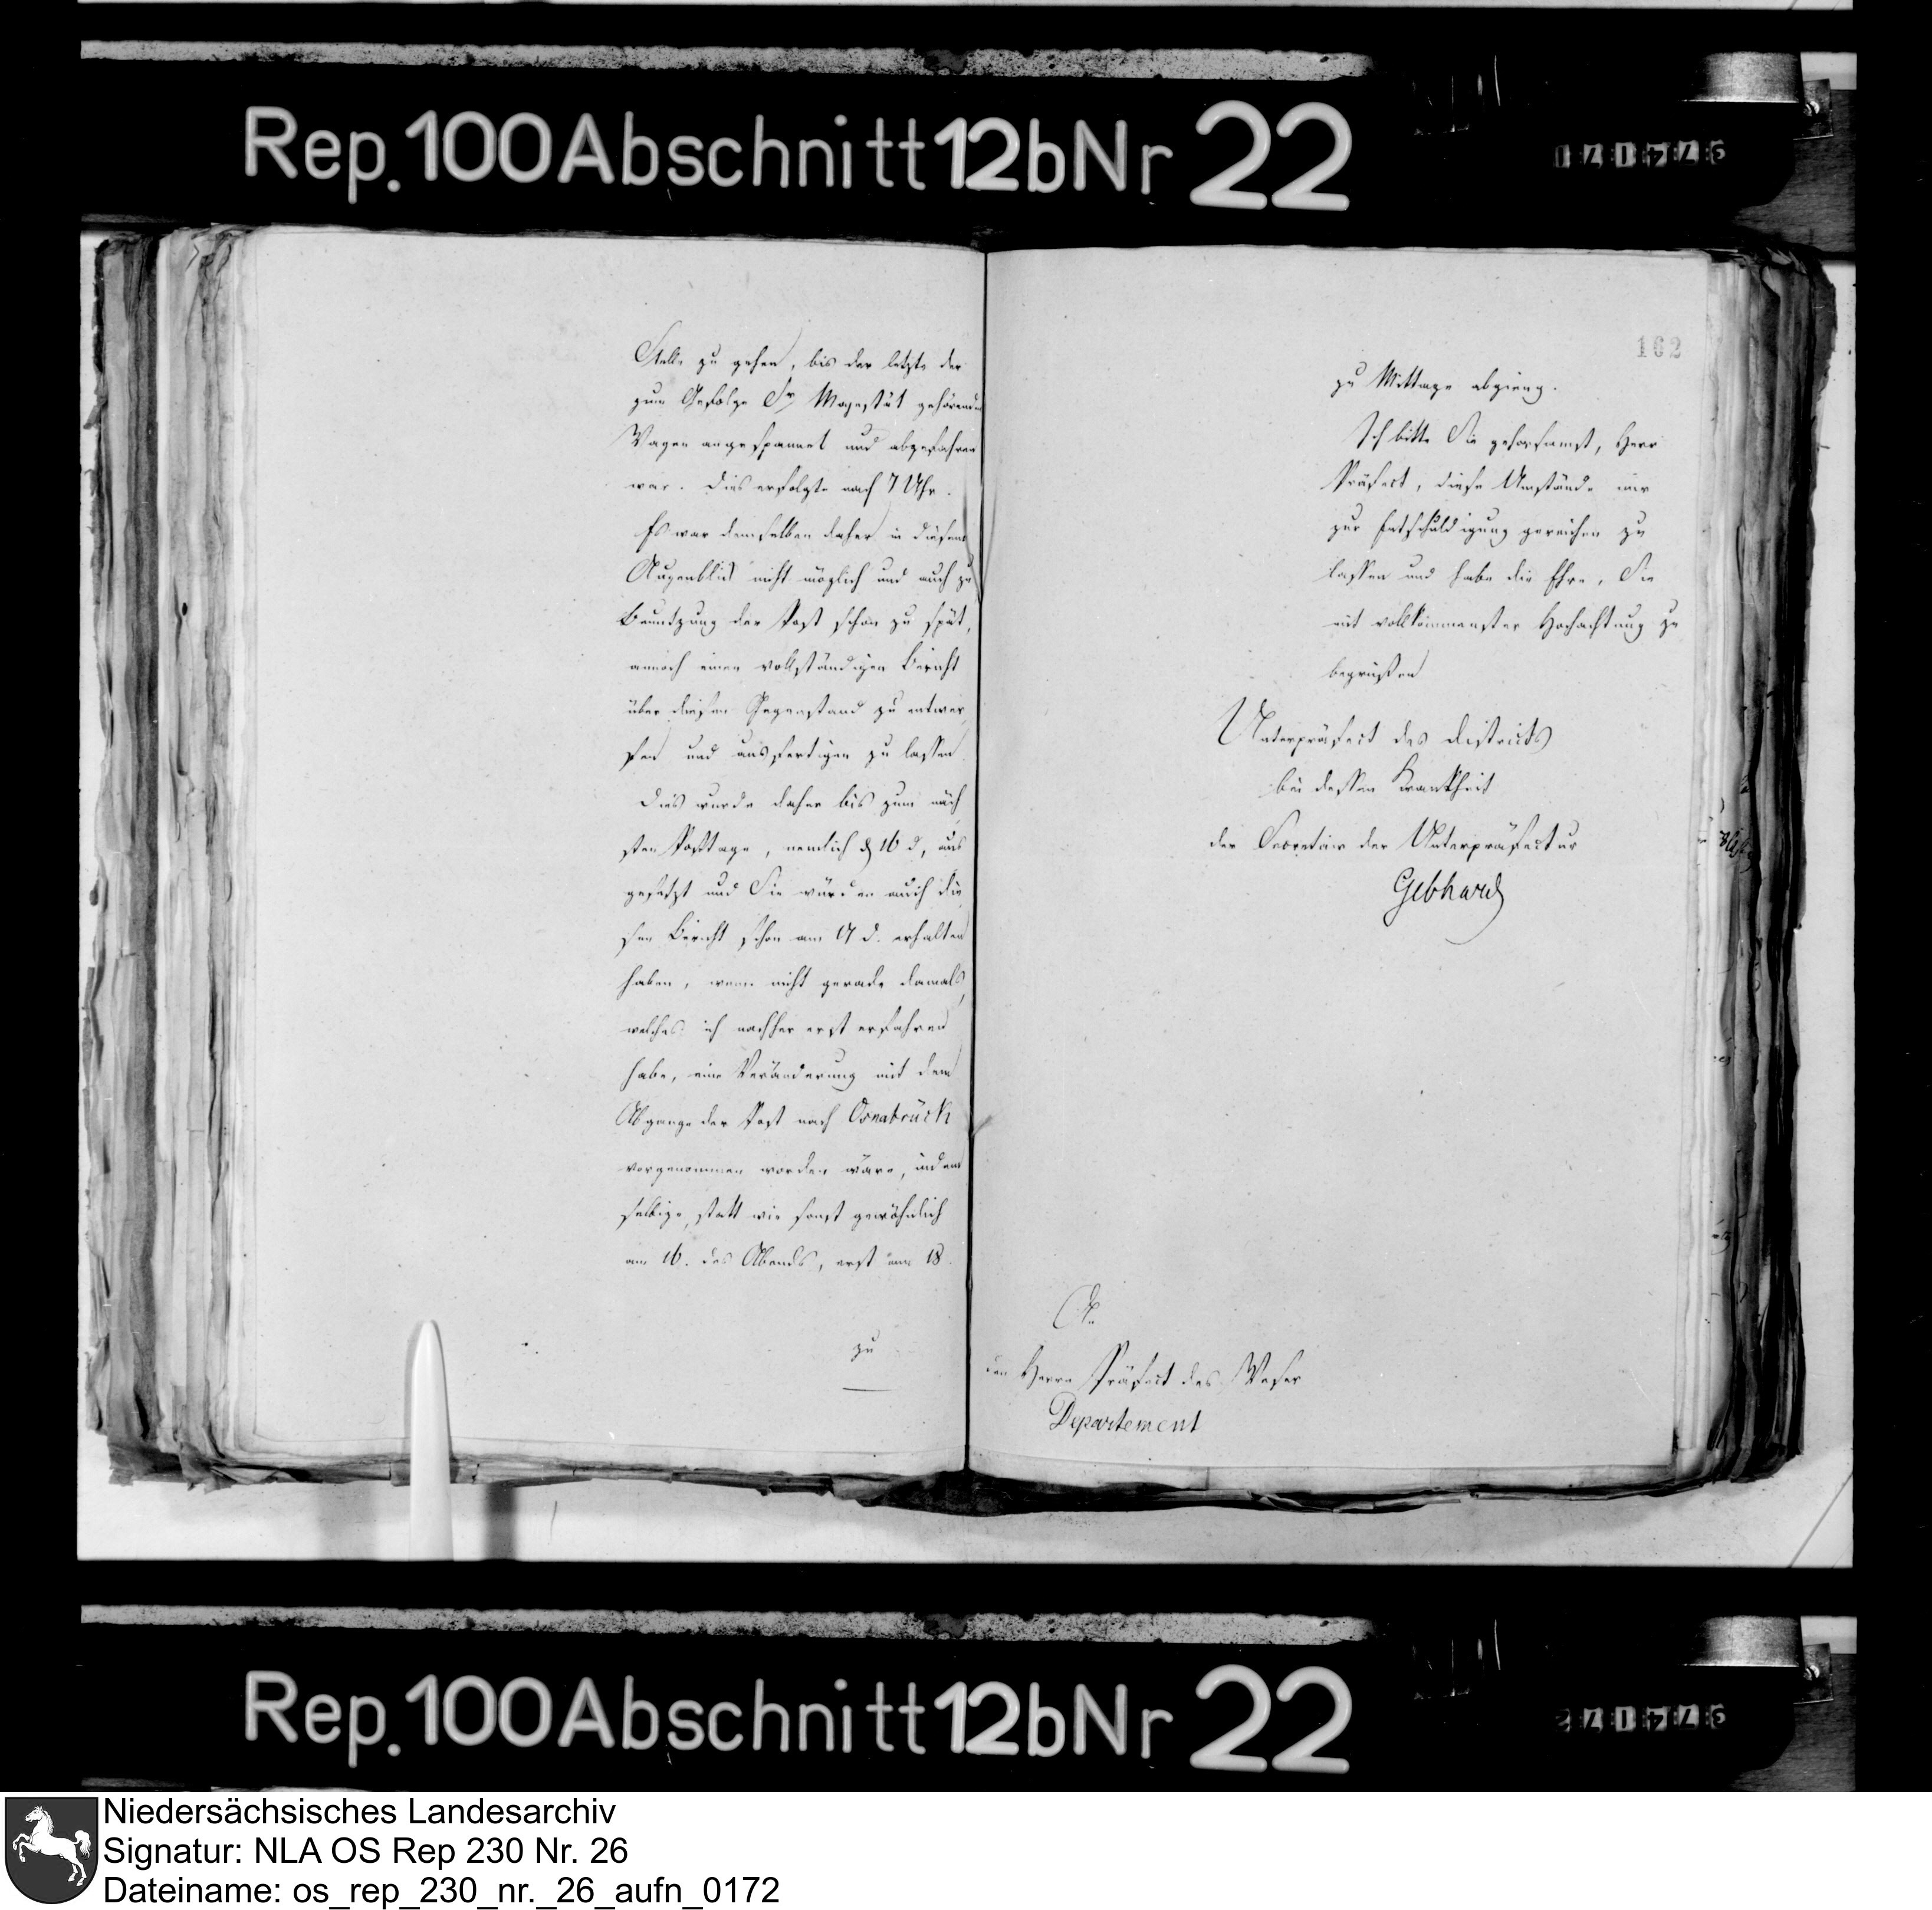 Rep. 100 Abschnitt 12b Nr 22
Stelle zu gehen, bis der letzte der
zum Gefolge Sr Majestät gehörenden
Wagen angespannet und abgefahren
war. Dies erfolgte nach 7 Uhr.
Es war demselben daher in diesem
Augenblick nicht möglich und auch zu
Benutzung der Post schon zu spät,
annoch einen vollständigen Bericht
über diesen Gegenstand zu entwer
fen und ausfertigen zu lassen
Dies wurde daher bis zum näch
sten Posttage, nemlich d 16 d, aus
gesetzt und Sie würden auch die
sen Bericht schon am 17 d. erhalten
haben, wenn nicht gerade damals,
welches ich nachher erst erfahren
habe, eine Veränderung mit dem
Abgange der Post nach Osnabrück
vorgenommen worden wäre, indem
selbige, statt wie sonst gewöhnlich
am 16. des Abends, erst am 18.
zu
162
zu Mittage abgieng.
Ich bitte Sie gehorsamst, Herr
Präfect, diese Umstände mir
zur Entschuldigung gereichen zu
lassen und habe die Ehre, Sie
mit vollkommenster Hochachtung zu
begrüßen
Unterpräfect des Districts
bei dessen Krankheit
der Secretair der Unterpräfectur
Gebhard
An
den Herrn Präfect des Weser
Departement
Rep. 100 Abschnitt 12b Nr 22
Niedersächsisches Landesarchiv
Signatur: NLA OS Rep 230 Nr. 26
Dateiname: os_rep_230_nr._26_aufn_0172